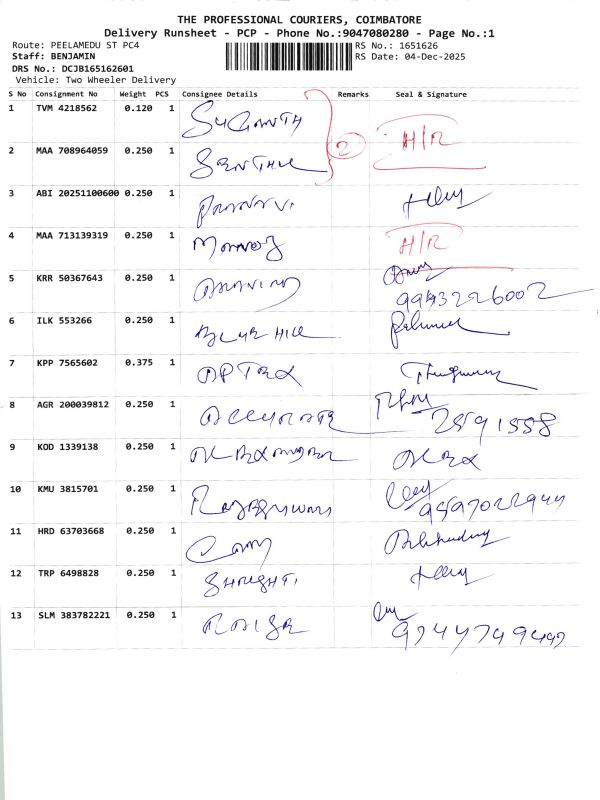 THE PROFESSIONAL COURIERS, COIMBATORE
Delivery Runsheet - PCP - Phone No.:9047080280 - Page No.:1
Route: PEELAMEDU ST PC4 RS No.: 1651626
Staff: BENJAMIN RS Date: 04-Dec-2025
DRS No.: DCJB165162601
Vehicle: Two Wheeler Delivery
S No Consignment No Weight PCS Consignee Details Remarks Seal & Signature
1 TVM 4218562 0.120 1 SUGANTH
2 MAA 708964059 0.250 1 SENTHIL 2 H/R
3 ABI 20251100600 0.250 1
4 MAA 713139319 0.250 1 MANOJ H/R
5 KRR 50367643 0.250 1 ARAVIND 9943226002
6 ILK 553266 0.250 1 BLUE HILL
7 KPP 7565602 0.375 1 APTEX
8 AGR 200039812 0.250 1 ACCURATE
9 KOD 1339138 0.250 1 ALEXANDER ALEX
10 KMU 3815701 0.250 1
11 HRD 63703668 0.250 1
12 TRP 6498828 0.250 1
13 SLM 383782221 0.250 1